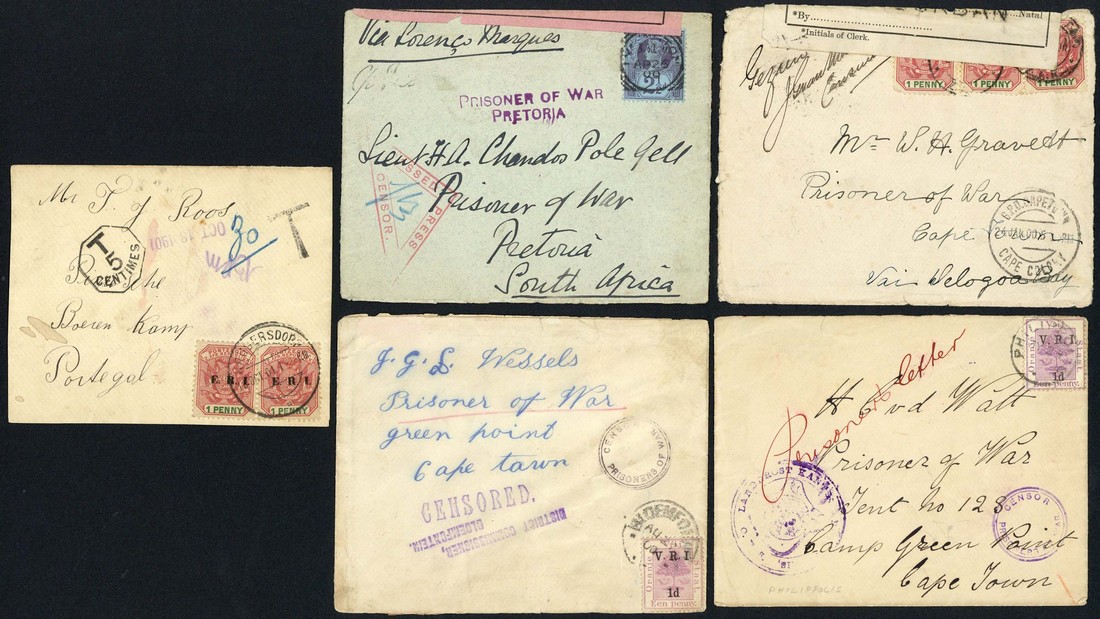 Mr T. J. Roos
T
5
CENTIMES
OCT 18 1901
30
T
Boeren Kamp
Portegal
E.R.I. E.R.I.
1 PENNY 1 PENNY
Via Lorenço Marques
PRISONER OF WAR
PRETORIA
Lieut H. A. Chandos Pole Gell
PASSED PRESS
CENSOR.
Prisoner of War
Pretoria
South Africa
*By Natal
*Initials of Clerk.
1 PENNY 1 PENNY 1 PENNY
Mr W. H. Gravett
Prisoner of War
Cape
G.P.O. CAPE TOWN
CAPE COLONY
Vai Delogoa Bay
J. G. L. Wessels
Prisoner of War
green point
Cape tawn
CENSOR
PRISONERS OF WAR
CENSORED.
DISTRICT COMMISSIONER,
BLOEMFONTEIN.
BLOEMFONTEIN
V.R.I.
1d
Een penny.
Prisoners letter
V.R.I.
1d
Een penny.
H C vd Walt
Prisoner of War
Tent No 128
Camp Green Point
Cape Town
CENSOR
PRISONERS OF WAR
PHILIPPOLIS